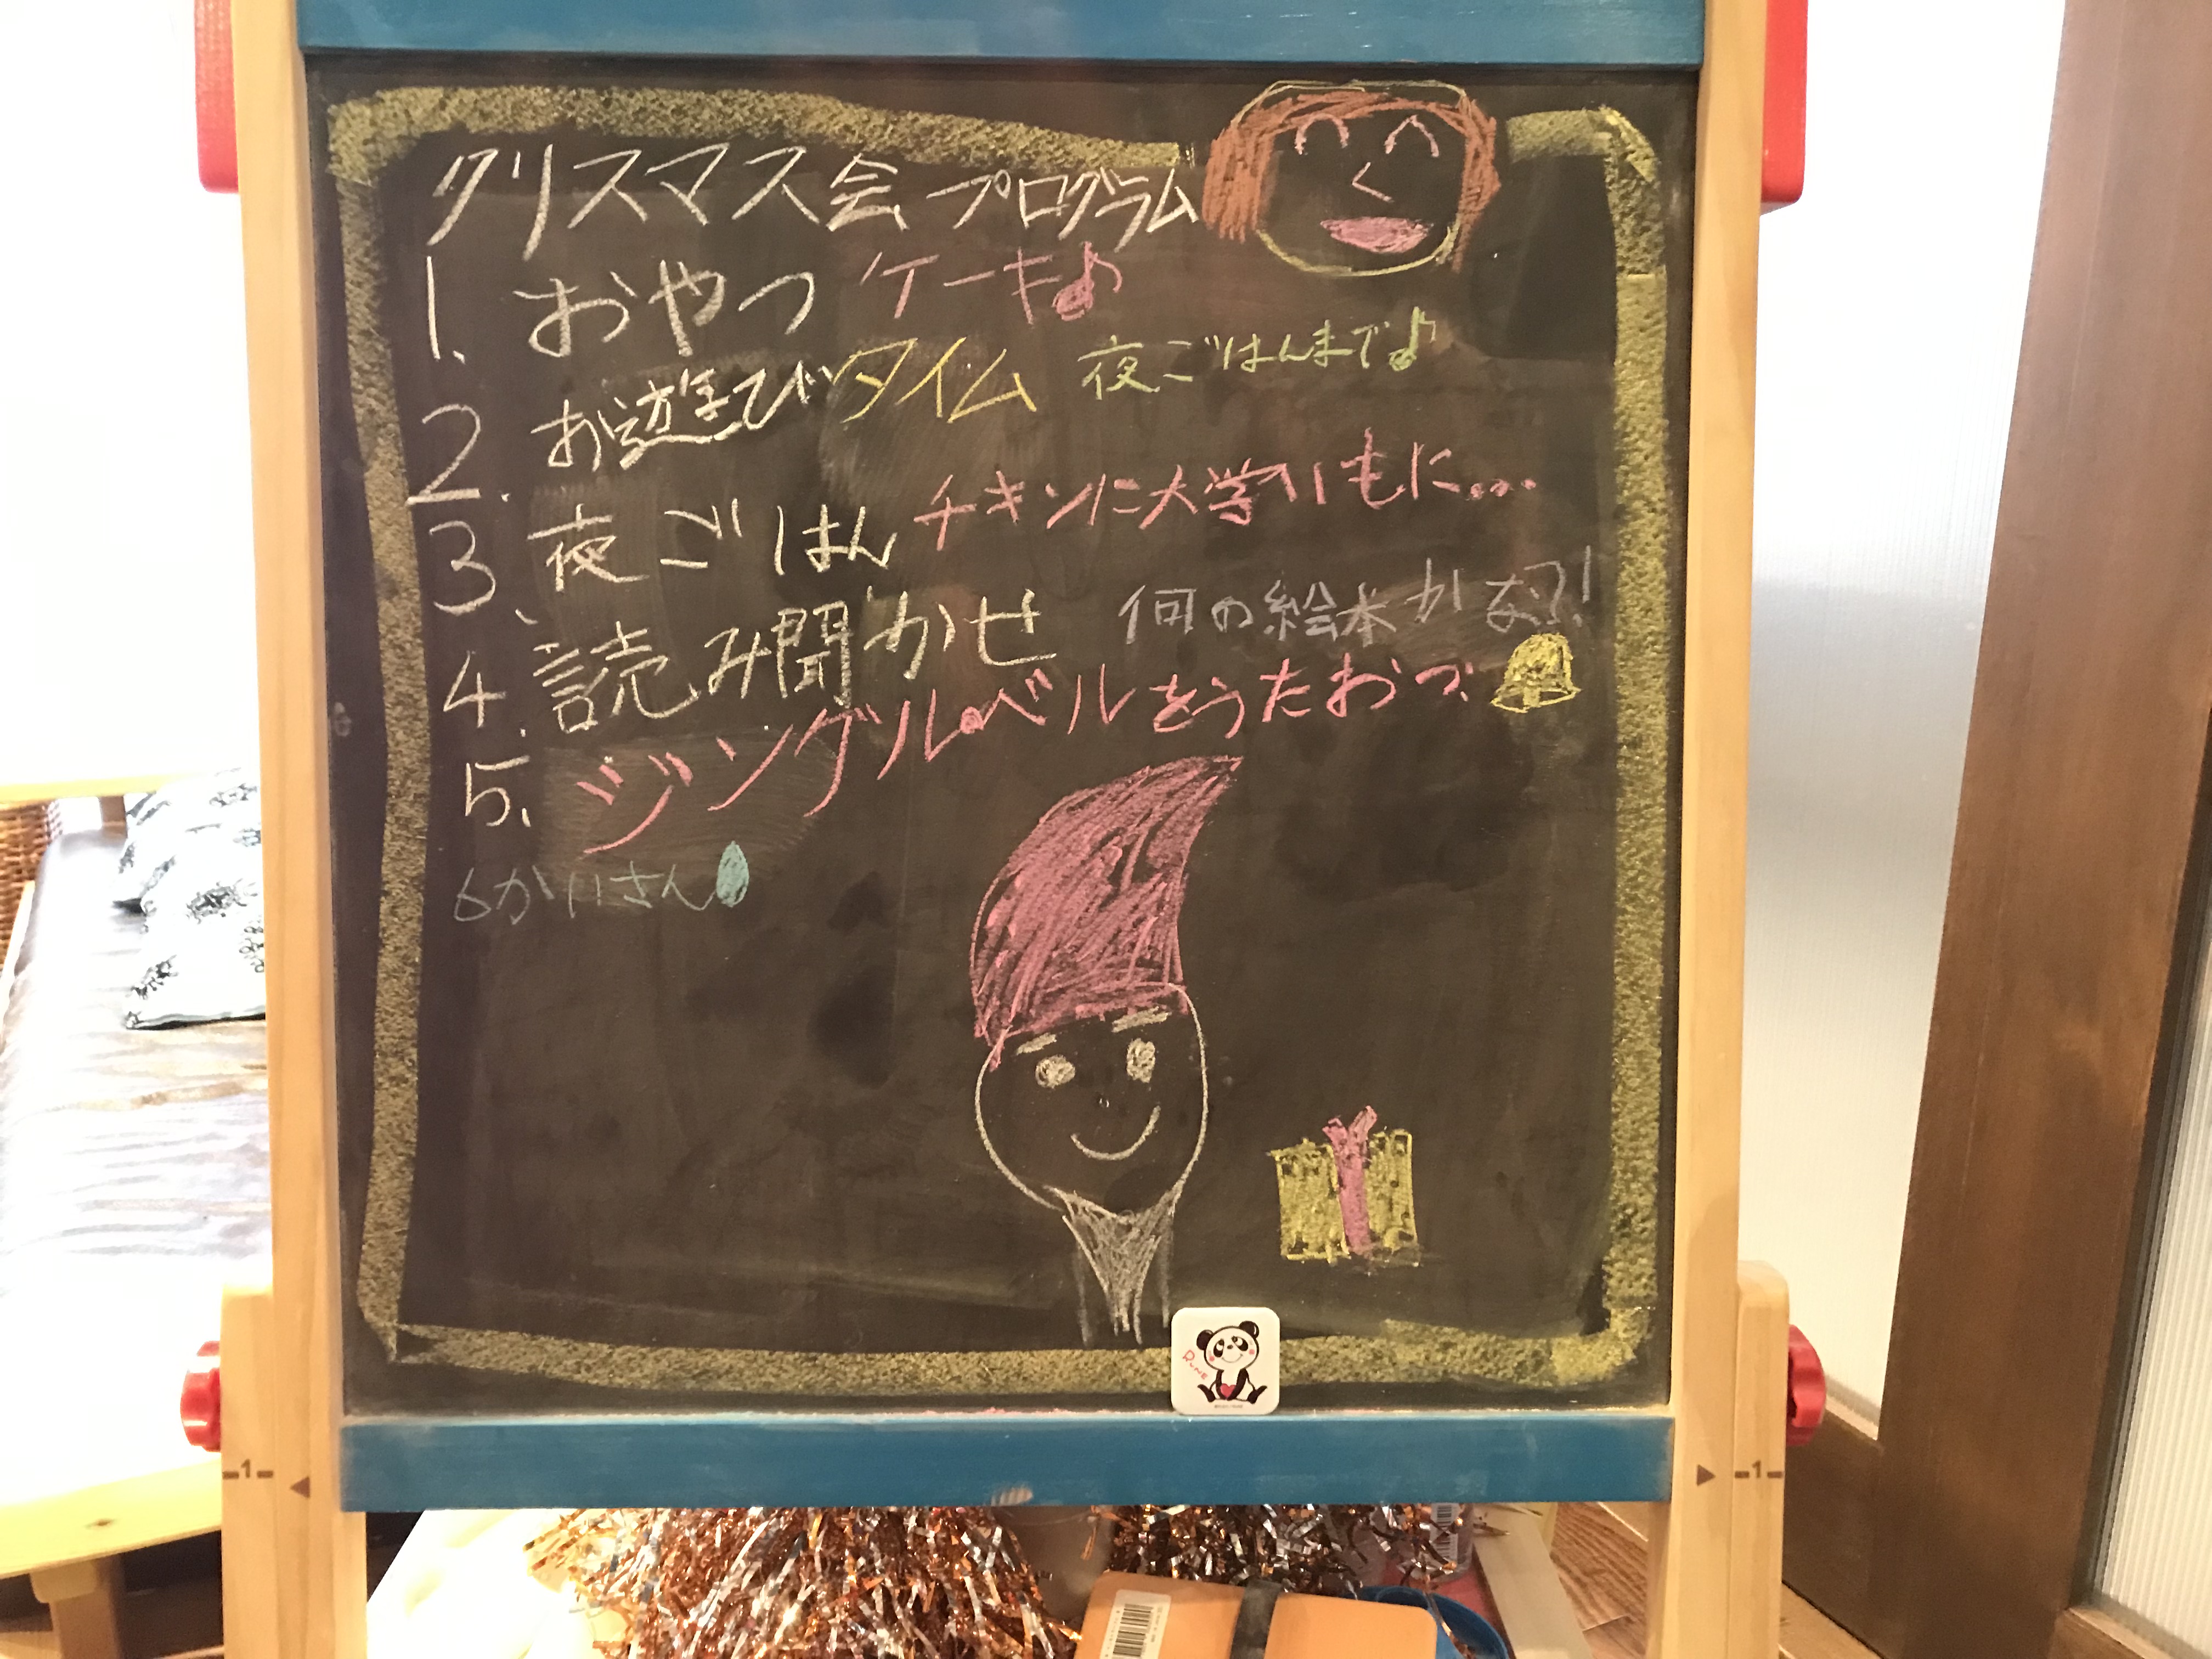 クリスマス会プログラム
1. おやつ ケーキ♪
2. お遊びタイム 夜ごはんまで♪
3、夜ごはん チキンに大学いもに...
4. 読み聞かせ 何の絵本かな?!
5、ジングルベルをうたおう
6かいさん
RUNE
-1-
-1-